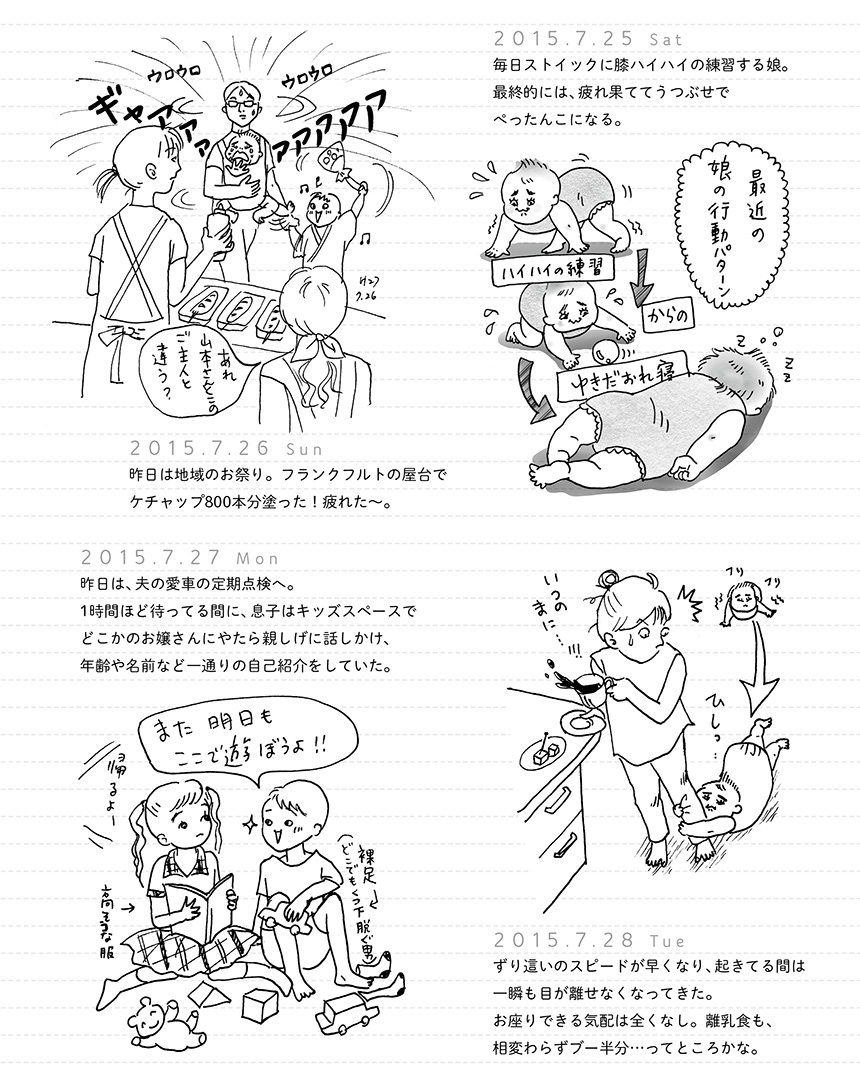 2015.7.25 Sat
毎日ストイックに膝ハイハイの練習する娘。
最終的には、疲れ果ててうつぶせで
ぺったんこになる。
最近の
娘の行動パターン
ハイハイの練習
からの
ゆきだおれ寝
z
z
z
ウロウロ
ウロウロ
ギャアアァ
アアアアアア
H27
7.26
あれ
山本さんとこの
ご主人と
違う?
2015.7.26 Sun
昨日は地域のお祭り。フランクフルトの屋台で
ケチャップ800本分塗った!疲れた〜。
2015.7.27 Mon
昨日は、夫の愛車の定期点検へ。
1時間ほど待ってる間に、息子はキッズスペースで
どこかのお嬢さんにやたら親しげに話しかけ、
年齢や名前など一通りの自己紹介をしていた。
また 明日も
ここで遊ぼうよ!!
帰るよー
高そうな服
裸足
(どこでもくつ下脱ぐ男)
いつの
まに…!!!
フリ
フリ
ひしっ…
2015.7.28 Tue
ずり這いのスピードが早くなり、起きてる間は
一瞬も目が離せなくなってきた。
お座りできる気配は全くなし。離乳食も、
相変わらずブー半分…ってところかな。